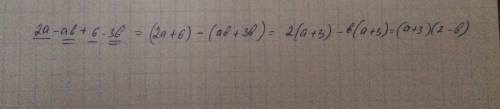 2a - ab + 6 - 3b = (2a+6) - (ab+3b) = 2(a+3) - b(a+3) = (a+3)(2-b)